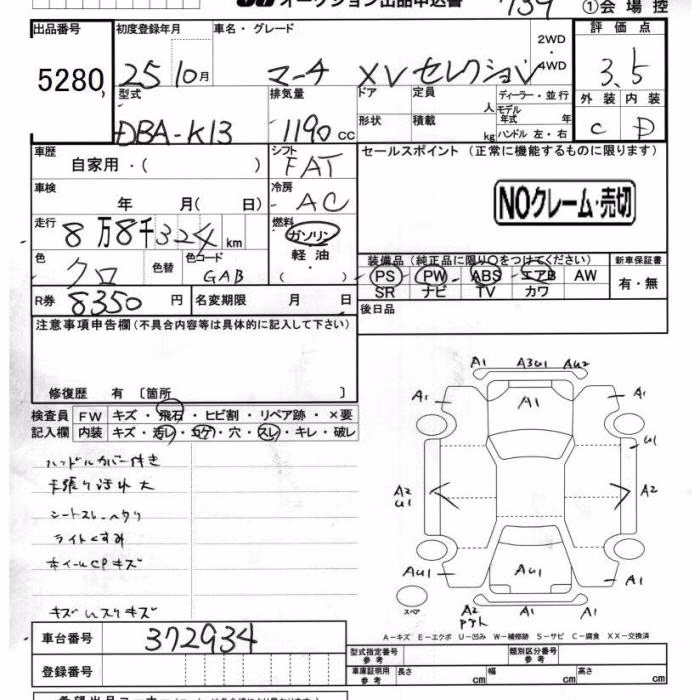 オークション出品申込書 739 ①会場控
出品番号 初度登録年月 車名・グレード 評価点
5280 25 10月 マーチ XVセレクション 2WD 4WD 3.5
型式 排気量 ドア 定員 ディーラー・並行 外装 内装
DBA-K13 1190cc 形状 積載 人 kg モデル年式 年 ハンドル 左・右 C D
車歴 自家用・( ) シフト FAT セールスポイント (正常に機能するものに限ります)
車検 年 月( 日) 冷房 AC NOクレーム・売切
走行 8万8千324km 燃料 ガソリン 軽油 ( )
色 クロ 色替 色コード GAB 装備品 (純正品に限り○をつけてください) 新車保証書
PS PW ABS エアB AW 有・無
SR ナビ TV カワ
R券 8350円 名変期限 月 日 後日品
注意事項申告欄 (不具合内容等は具体的に記入して下さい)
修復歴 有 〔箇所 〕
検査員 FW キズ・飛石・ヒビ割・リペア跡・×要
記入欄 内装 キズ・汚レ・コゲ・穴・スレ・キレ・破レ
ハンドルカバー付き
天張り汚れ大
シートスレ、ヘタリ
ライトくすみ
ホイールCPキズ
キズ Uスリキズ
A1 A3U1 AU2
A1 A1 A1
U1
A2 U1 A2
AU1 AU1 A1
スペア A2 アアト A1 A1
A-キズ E-エクボ U-凹み W-補修跡 S-サビ C-腐食 XX-交換済
車台番号 372934
型式指定番号 参考 類別区分番号 参考
登録番号 車庫証明用 参考 長さ cm 幅 cm 高さ cm